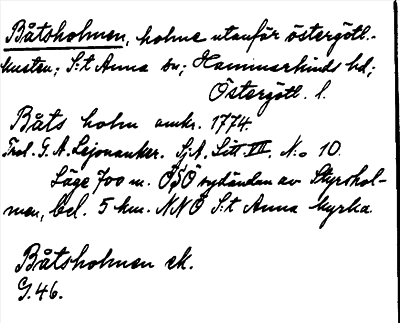 Båtsholmen, holme utanför östergötl.-
kusten; S:t Anna sn; Hammarkinds hd;
Östergötl. l.
Båts holm omkr. 1774.
Trol. G. A. Lejonancker. Sj.A. Litt VII. N:o 10.
Läge 700 m. ÖSÖ sydändan av Styrshol-
men, bel. 5 km. NNÖ S:t Anna kyrka.
Båtsholmen ek.
G.46.